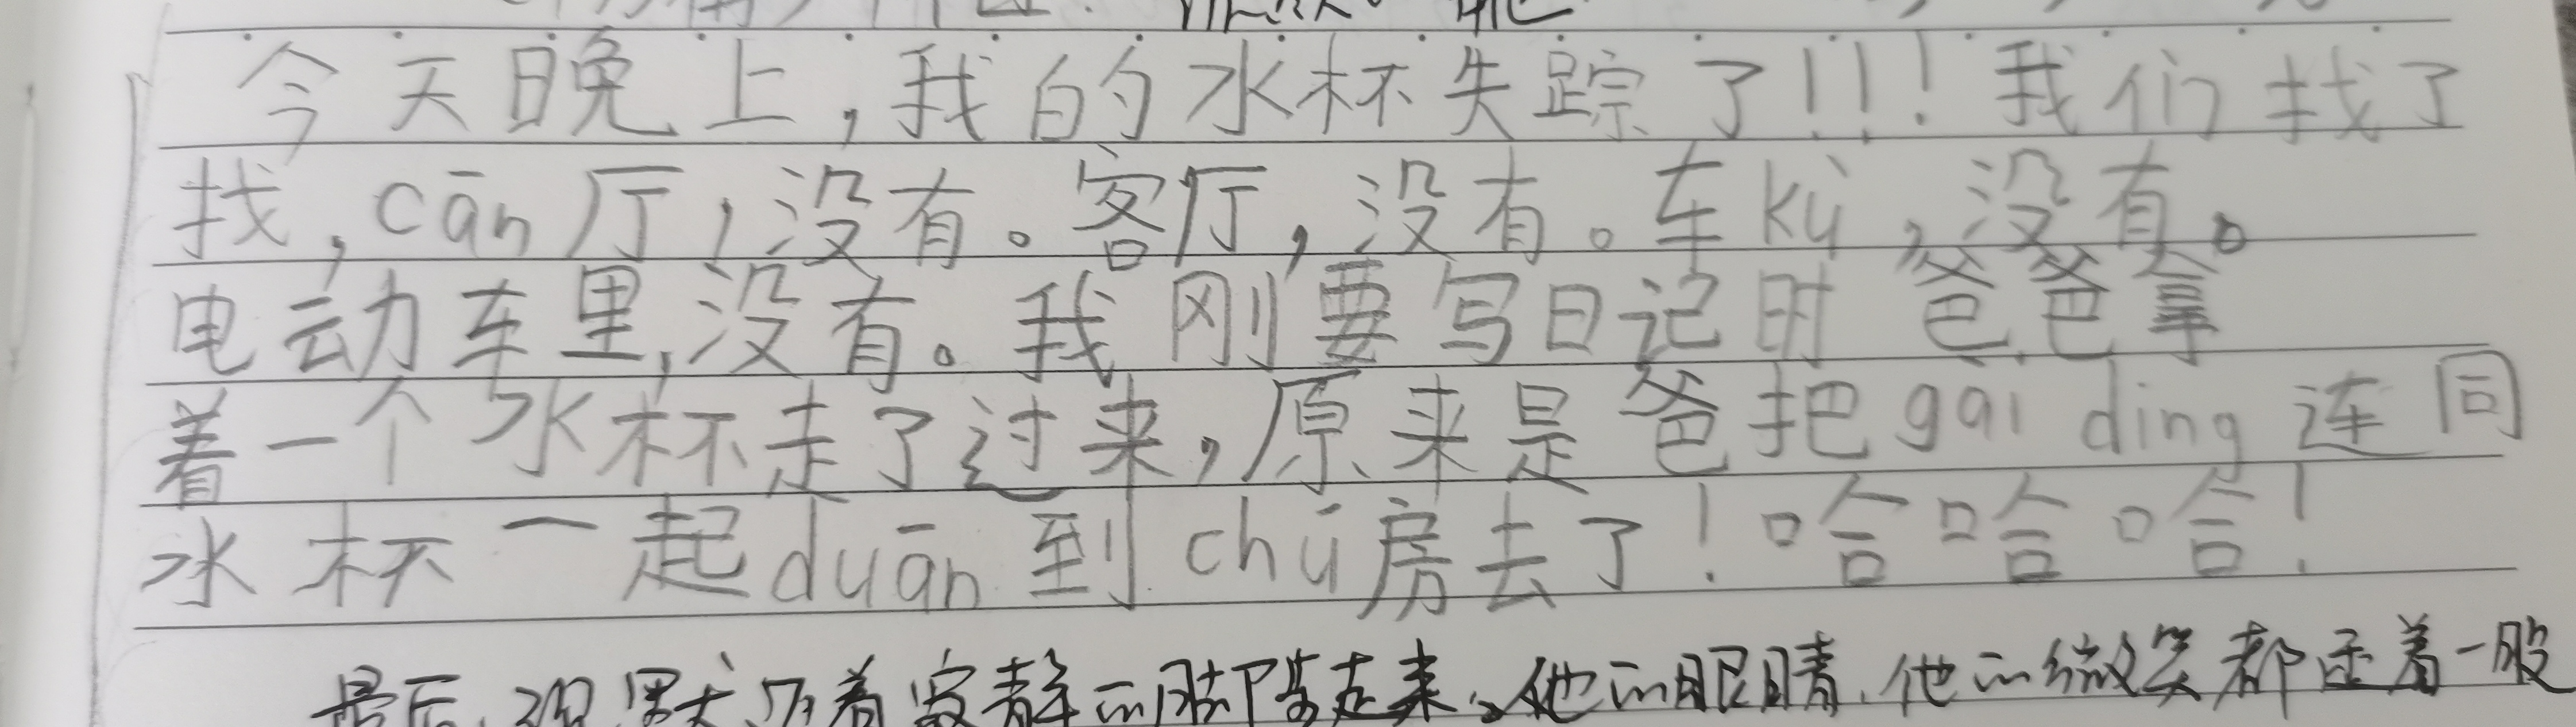 今天晚上,我的水杯失踪了!!!我们找了
找,cān厅,没有。客厅,没有。车kù,没有。
电动车里,没有。我刚要写日记时爸爸拿
着一个水杯走了过来,原来是爸把gài dǐng连同
水杯一起duān到chú房去了!哈哈哈!
最后,
着寂静的脚
走来。他的眼睛,他的微笑都
着一股